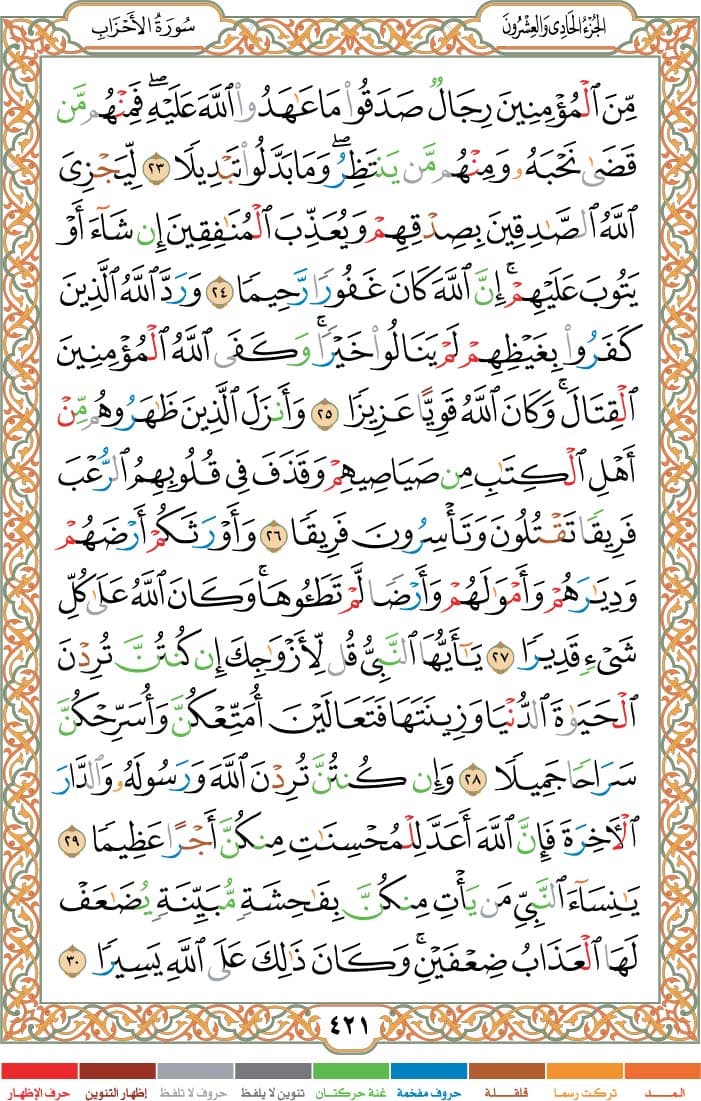 الجُزْءُ الحَادِى وَالعِشْرُونَ
سُورَةُ الأَحْزَاب
مِّنَ ٱلْمُؤْمِنِينَ رِجَالٌ صَدَقُوا۟ مَا عَٰهَدُوا۟ ٱللَّهَ عَلَيْهِ ۖ فَمِنْهُم مَّن
قَضَىٰ نَحْبَهُۥ وَمِنْهُم مَّن يَنتَظِرُ ۖ وَمَا بَدَّلُوا۟ تَبْدِيلًا ٢٣ لِّيَجْزِىَ
ٱللَّهُ ٱلصَّٰدِقِينَ بِصِدْقِهِمْ وَيُعَذِّبَ ٱلْمُنَٰفِقِينَ إِن شَآءَ أَوْ
يَتُوبَ عَلَيْهِمْ ۚ إِنَّ ٱللَّهَ كَانَ غَفُورًا رَّحِيمًا ٢٤ وَرَدَّ ٱللَّهُ ٱلَّذِينَ
كَفَرُوا۟ بِغَيْظِهِمْ لَمْ يَنَالُوا۟ خَيْرًا ۚ وَكَفَى ٱللَّهُ ٱلْمُؤْمِنِينَ
ٱلْقِتَالَ ۚ وَكَانَ ٱللَّهُ قَوِيًّا عَزِيزًا ٢٥ وَأَنزَلَ ٱلَّذِينَ ظَٰهَرُوهُم مِّنْ
أَهْلِ ٱلْكِتَٰبِ مِن صَيَاصِيهِمْ وَقَذَفَ فِى قُلُوبِهِمُ ٱلرُّعْبَ
فَرِيقًا تَقْتُلُونَ وَتَأْسِرُونَ فَرِيقًا ٢٦ وَأَوْرَثَكُمْ أَرْضَهُمْ
وَدِيَٰرَهُمْ وَأَمْوَٰلَهُمْ وَأَرْضًا لَّمْ تَطَـُٔوهَا ۚ وَكَانَ ٱللَّهُ عَلَىٰ كُلِّ
شَىْءٍ قَدِيرًا ٢٧ يَٰٓأَيُّهَا ٱلنَّبِىُّ قُل لِّأَزْوَٰجِكَ إِن كُنتُنَّ تُرِدْنَ
ٱلْحَيَوٰةَ ٱلدُّنْيَا وَزِينَتَهَا فَتَعَالَيْنَ أُمَتِّعْكُنَّ وَأُسَرِّحْكُنَّ
سَرَاحًا جَمِيلًا ٢٨ وَإِن كُنتُنَّ تُرِدْنَ ٱللَّهَ وَرَسُولَهُۥ وَٱلدَّارَ
ٱلْـَٔاخِرَةَ فَإِنَّ ٱللَّهَ أَعَدَّ لِلْمُحْسِنَٰتِ مِنكُنَّ أَجْرًا عَظِيمًا ٢٩
يَٰنِسَآءَ ٱلنَّبِىِّ مَن يَأْتِ مِنكُنَّ بِفَٰحِشَةٍ مُّبَيِّنَةٍ يُضَٰعَفْ
لَهَا ٱلْعَذَابُ ضِعْفَيْنِ ۚ وَكَانَ ذَٰلِكَ عَلَى ٱللَّهِ يَسِيرًا ٣٠
٤٢١
المــد تركت رسما قلقلة حروف مفخمة غنة حركتان تنوين لا يلفظ حروف لا تلفظ إظهار التنوين حرف الإظهار